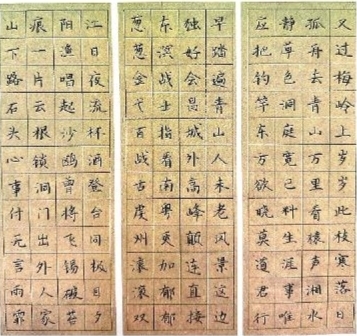 又过梅岭上岁岁此枝寒落日
孤舟去青山万里看猿声湘水
静草色洞庭宽已料生涯事唯
应把钓竿东方欲晓莫道君行
早踏遍青山人未老风景这边
独好会昌城外高峰颠连直接
东溟战士指看南粤更加郁郁
葱葱金戈百战古虔州滚滚双
江日夜流杯酒登台同极目夕
阳渔唱起沙鸥曾将飞锡碍苔
痕一片云根锁洞门出外人家
山下路石头心事付无言雨霏